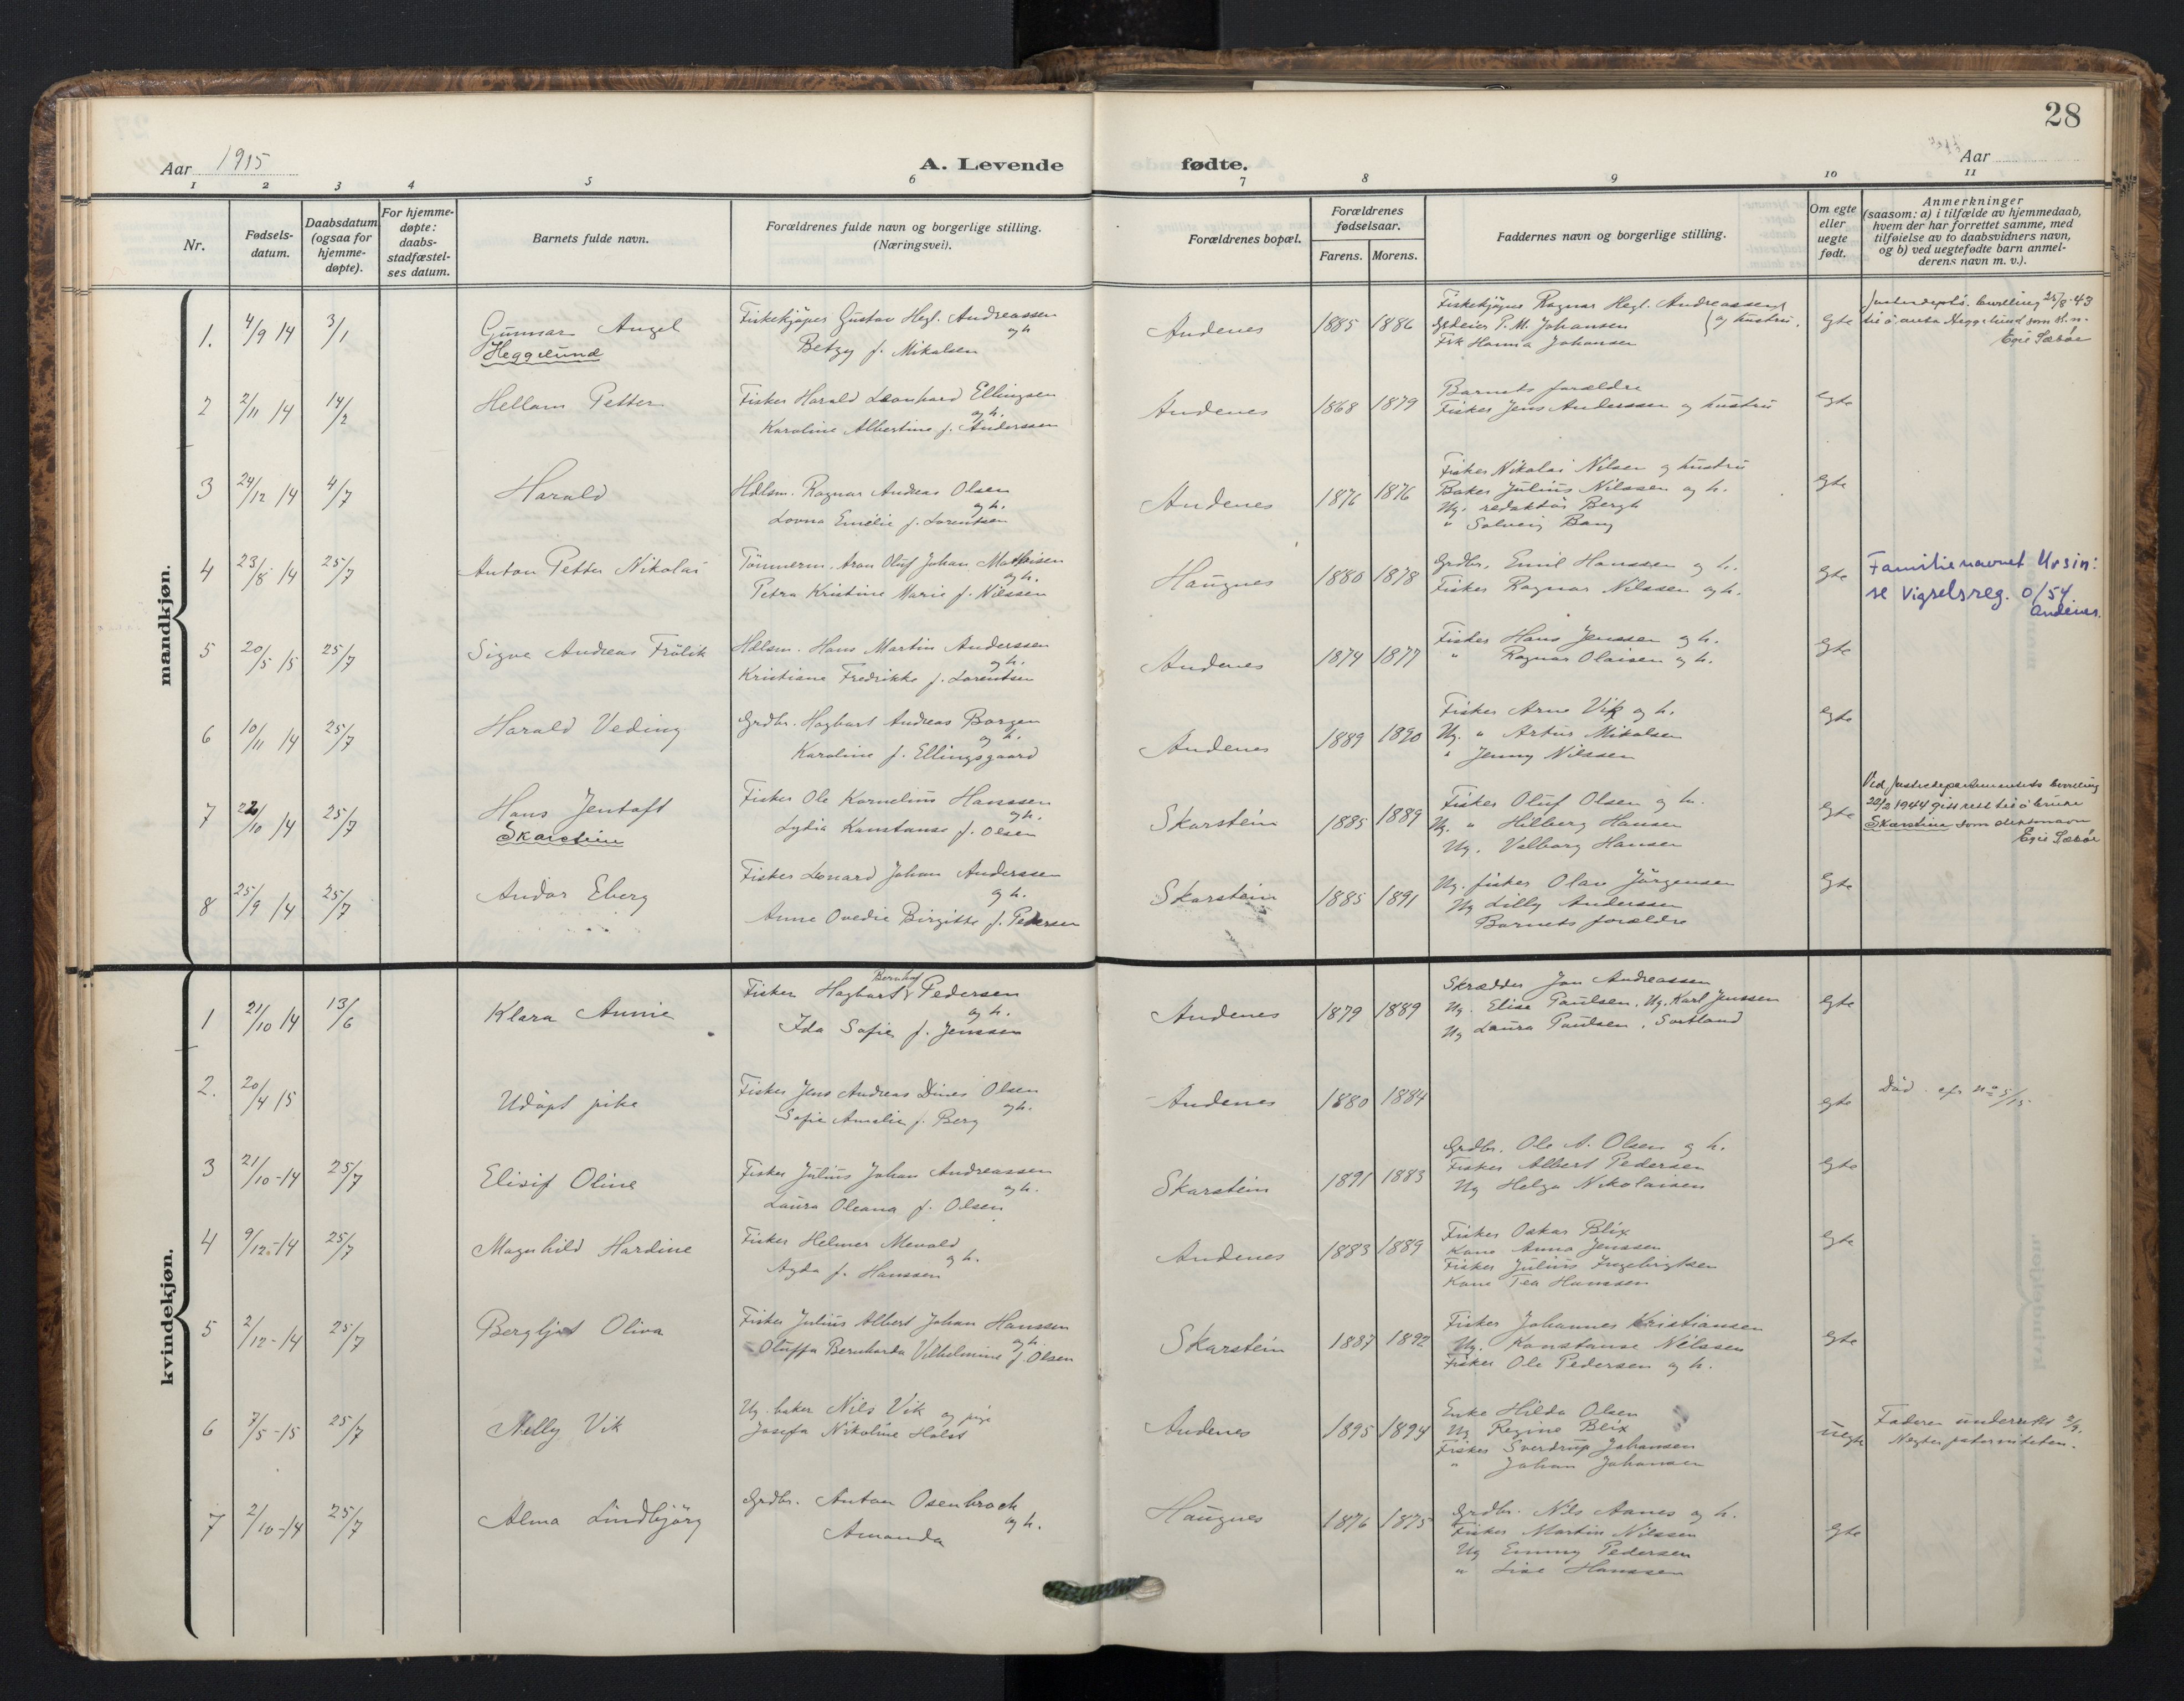 28
Aar 1915
A. Levende fødte.
Aar
1 2 3 4 5 6 7 8 9 10 11
Nr.
Fødsels-
datum.
Daabsdatum
(ogsaa for
hjemme-
døpte).
For hjemme-
døpte:
daabs-
stadfæstel-
ses datum.
Barnets fulde navn.
Forældrenes fulde navn og borgerlige stilling.
(Næringsvei).
Forældrenes bopæl.
Forældrenes
fødselsaar.
Farens. Morens.
Faddernes navn og borgerlige stilling.
Om egte
eller
uegte
født.
Anmerkninger
(saasom: a) i tilfælde av hjemmedaab,
hvem der har forrettet samme, med
tilføielse av to daabsvidners navn,
og b) ved uegtefødte barn anmel-
derens navn m. v.).
mandkjøn.
1. 4/9 14 3/1
Gunnar Angel
Heggelund
Fiskekjøper Gustav Hegl. Andreassen
og h
Betzy f. Mikalsen
Andenes 1885 1886
Fiskekjøper Ragnar Hegl. Andreassen
Grdeier P. M. Johansen og hustru.
Frk Hanna Johansen
egte
Justisdepts. bevilling 25/8-43
til å anta Heggelund som sl.n.
2 2/11 14 14/2
Hellam Petter
Fisker Harald Leonhard Ellingsen
og h.
Karoline Albertine f. Anderssen
Andenes 1868 1879
Barnets forældre
Fisker Jens Anderssen og hustru
egte
3 24/12 14 4/7
Harald
Hdlsm. Ragnar Andreas Olsen
og h.
Lovna Emelie f. Lorentsen
Andenes 1876 1876
Fisker Nikolai Nilsen og hustru
Baker Julius Nilssen og h.
Ug. redaktør Bergh
" Solveig Bang
egte
4 23/8 14 25/7
Anton Petter Nikolai
Tømmerm. Aron Oluf Johan Mathisen
og h.
Petra Kristine Marie f. Nilssen
Haugnes 1880 1878
Grdbr. Emil Hanssen og h.
Fisker Ragnar Nilssen og h.
egte
Familienavnet Ursin:
se Vigselsreg. 0/54
Andenes.
5 20/5 15 25/7
Sigve Andreas Frölik
Hdlsm. Hans Martin Anderssen
og h.
Kristiane Fredrikke f. Lorentsen
Andenes 1874 1877
Fisker Hans Jenssen og h.
" Ragnar Olaisen og h.
egte
6 10/11 14 25/7
Harald Veding
Grdbr. Hagbart Andreas Borgen
og h.
Karoline f. Ellingsgaard
Andenes 1889 1890
Fisker Arne Vik og h.
Ug. " Artur Mikalsen
" Jenny Nilssen
egte
7 22/10 14 25/7
Hans Jentoft
Skarstein
Fisker Ole Kornelius Hanssen
og h.
Lydia Konstanse f. Olsen
Skarstein 1885 1889
Fisker Oluf Olsen og h.
Ug. " Hilberg Hansen
Ug. Valborg Hansen
egte
Ved Justisdepartementets bevilling
22/3 1944 gitt rett til å bruke
Skarstein som slektsnavn
8 25/9 14 25/7
Andor Eberg
Fisker Lonard Johan Anderssen
og h.
Anne Ovedie Birgitte f. Pedersen
Skarstein 1885 1891
Ug. fisker Olav Jørgensen
Ug Lilly Anderssen
Barnets forældre
egte
kvindekjøn.
1 21/10 14 13/6
Klara Annie
Bernhof
Fisker Hagbart Pedersen
og h.
Ida Sofie f. Jenssen
Andenes 1879 1889
Skrædder Jon Andreassen
Ug. Elise Paulsen, Ug. Karl Jenssen
Ug Laura Paulsen, Sortland
egte
2. 20/4 15
Udøpt pike
Fisker Jens Andreas Dines Olsen
og h.
Sofie Amalie f. Berg
Andenes 1880 1884
egte
Död cfr no 5/15
3 21/10-14 25/7
Elisif Oline
Fisker Julius Johan Andreassen
og h.
Laura Oleana f. Olsen
Skarstein 1891 1883
Grdbr. Ole A. Olsen og h.
Fisker Albert Pedersen
Ug Helga Nikolaisen
egte
4 9/12-14 25/7
Magnhild Hardine
Fisker Helmer Mevold
og h.
Agda f. Hanssen
Andenes 1883 1889
Fisker Oskar Blix
Kone Anna Jenssen
Fisker Julius Ingebrigtsen
Kone Tea Hanssen
egte
5 2/12-14 25/7
Bergljot Oliva
Fisker Julius Albert Johan Hanssen
og h.
Oluffa Bernharda Vilhelmine f. Olsen
Skarstein 1887 1892
Fisker Johannes Kristiansen
Ug. Konstanse Nilssen
Fisker Ole Pedersen og h.
egte
6 7/5-15 25/7
Nelly Vik
Ug. baker Nils Vik og pige
Josefa Nikoline Holst
Andenes 1895 1894
Enke Hilda Olsen
Ug Regine Blix
Fisker Sverdrup Johansen
" Johan Johansen
uegte
Faderen underrettet 2/9.
Negter paterniteten.
7 2/10-14 25/7
Alma Lindbjørg
Grdbr. Anton Osenbrock
og h.
Amanda
Haugnes 1876 1875
Grdbr. Nils Aanes og h.
Fisker Martin Nilssen
Ug Emmy Pedersen
" Lise Hanssen
egte